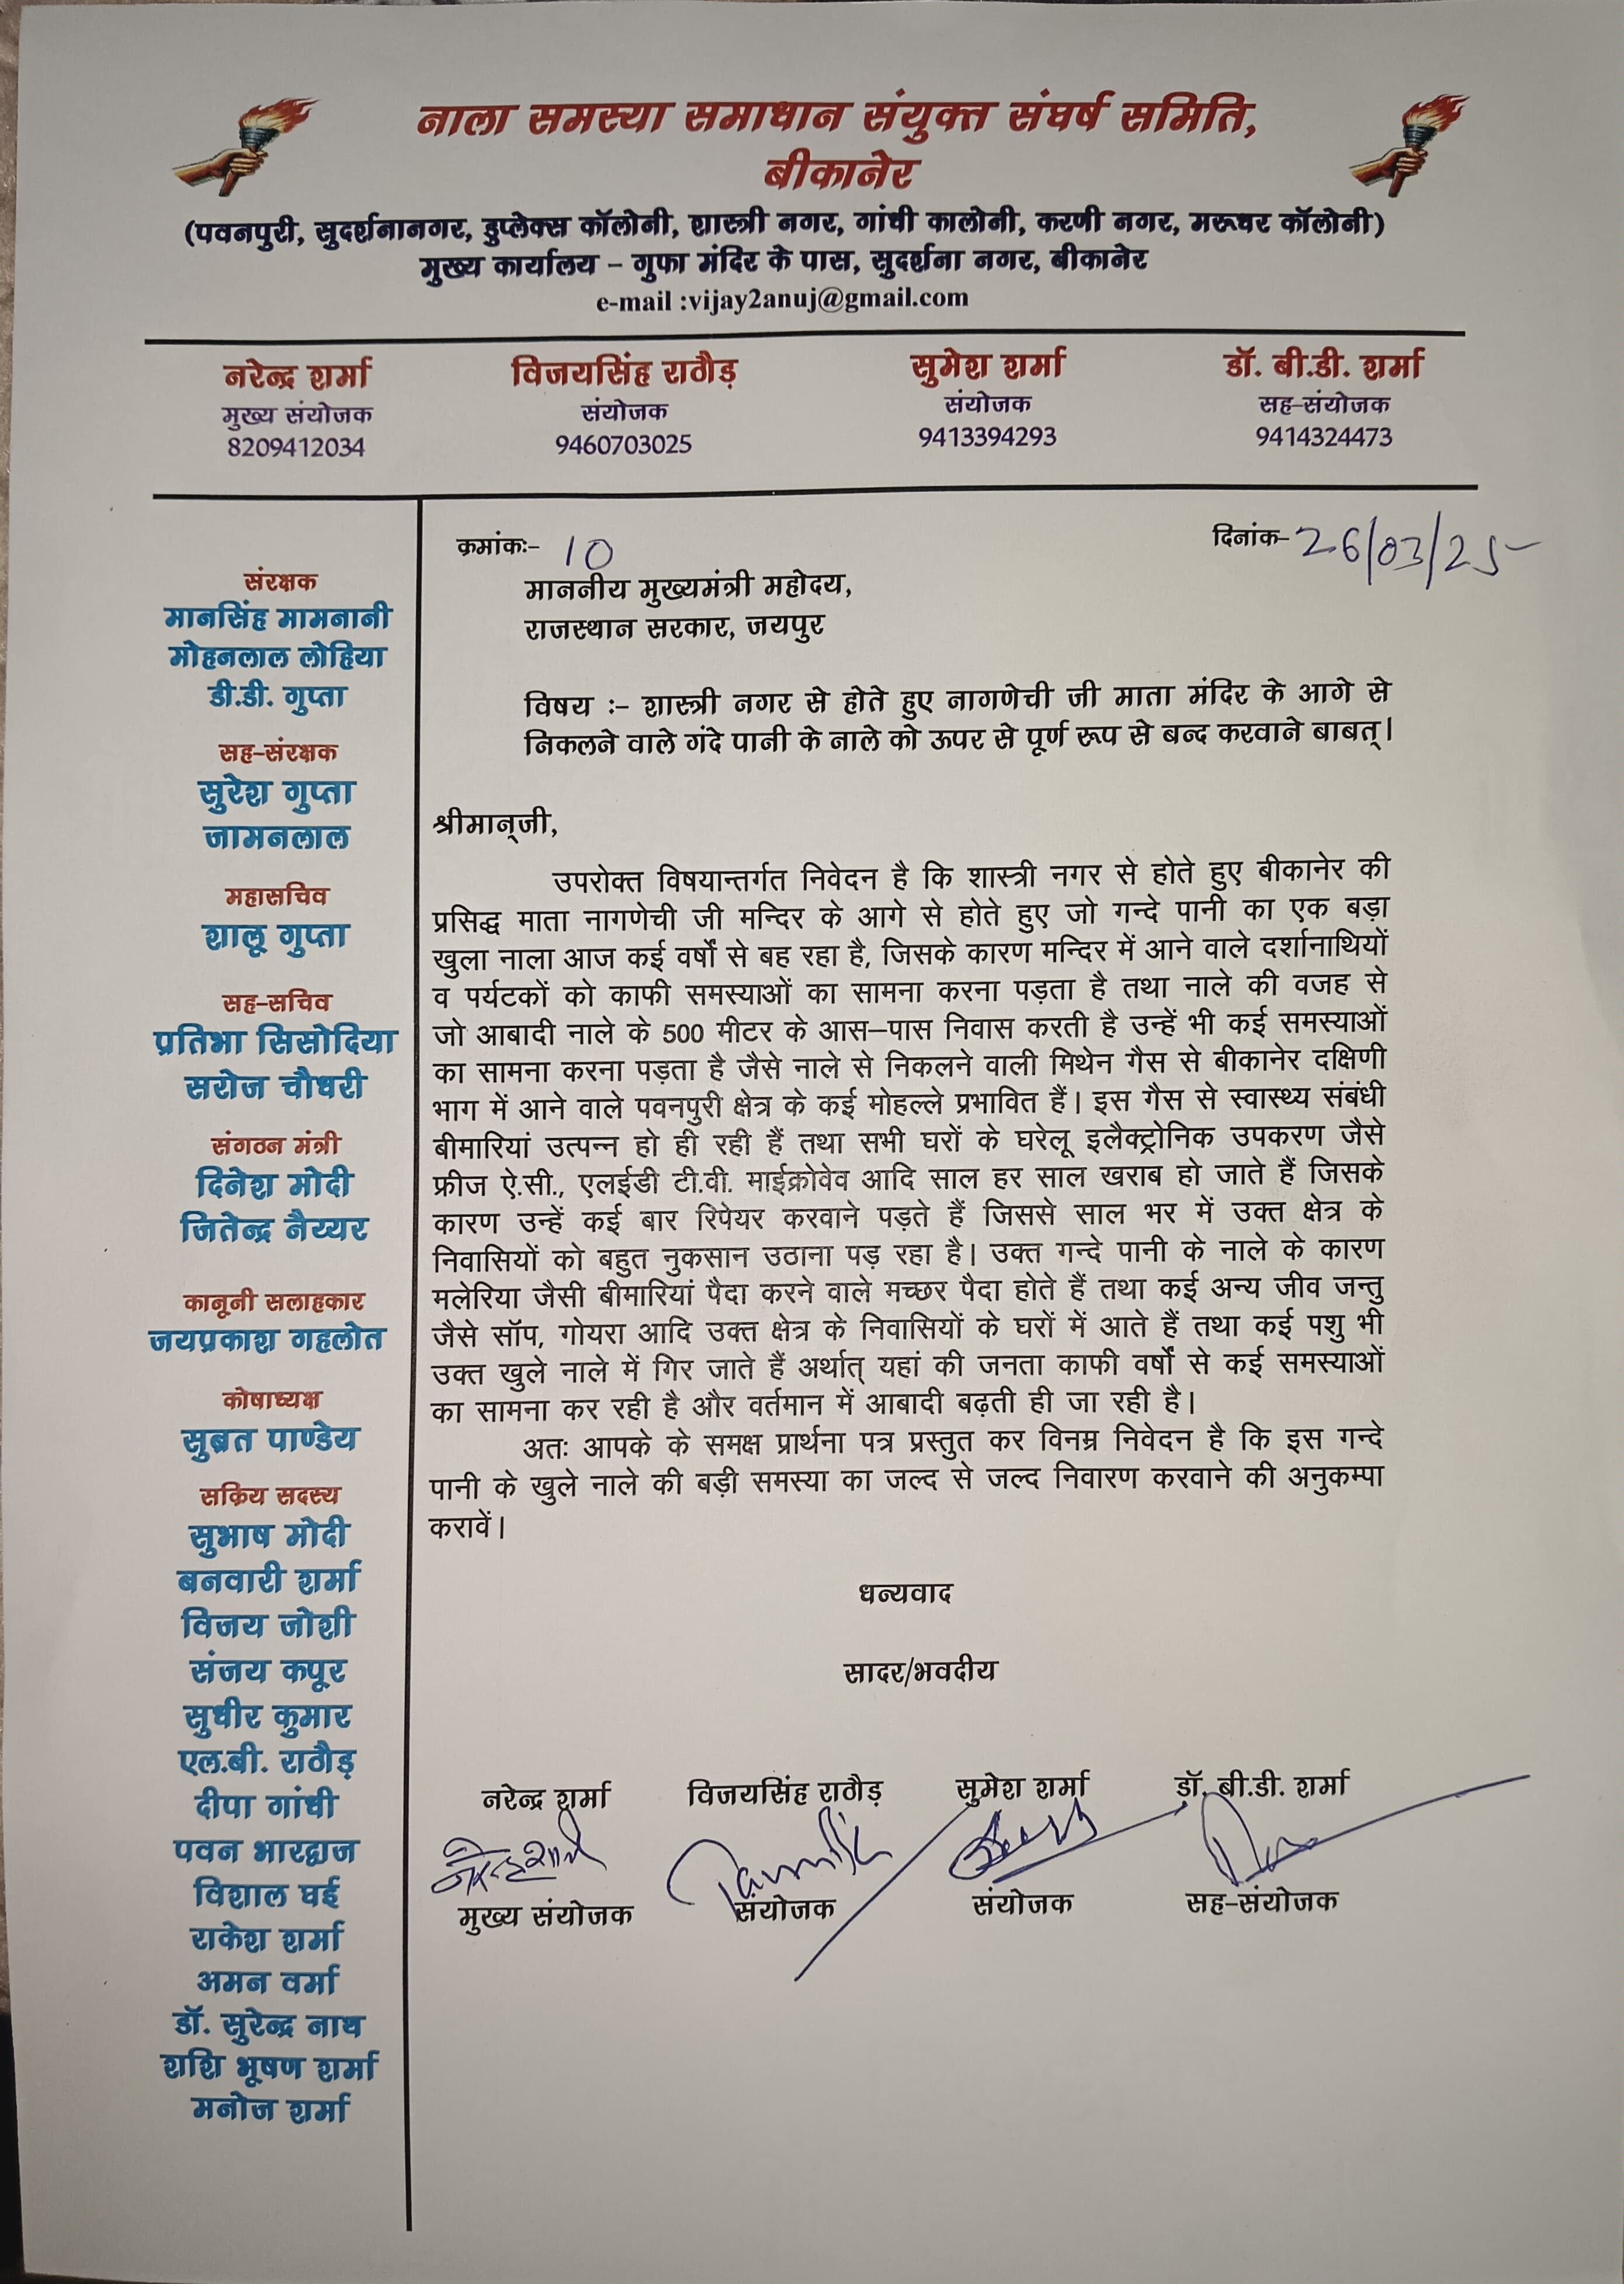 नाला समस्या समाधान संयुक्त संघर्ष समिति,
बीकानेर
(पवनपुरी, सुदर्शनानगर, डुप्लेक्स कॉलोनी, शास्त्री नगर, गांधी कालोनी, करणी नगर, मरूधर कॉलोनी)
मुख्य कार्यालय – गुफा मंदिर के पास, सुदर्शना नगर, बीकानेर
e-mail :vijay2anuj@gmail.com
नरेन्द्र शर्मा विजयसिंह राठौड़ सुमेश शर्मा डॉ. बी.डी. शर्मा
मुख्य संयोजक संयोजक संयोजक सह-संयोजक
8209412034 9460703025 9413394293 9414324473
संरक्षक
मानसिंह मामनानी
मोहनलाल लोहिया
डी.डी. गुप्ता
सह-संरक्षक
सुरेश गुप्ता
जामनलाल
महासचिव
शालू गुप्ता
सह-सचिव
प्रतिभा सिसोदिया
सरोज चौधरी
संगठन मंत्री
दिनेश मोदी
जितेन्द्र नैय्यर
कानूनी सलाहकार
जयप्रकाश गहलोत
कोषाध्यक्ष
सुब्रत पाण्डेय
सक्रिय सदस्य
सुभाष मोदी
बनवारी शर्मा
विजय जोशी
संजय कपूर
सुधीर कुमार
एल.बी. राठौड़
दीपा गांधी
पवन भारद्वाज
विशाल घई
राकेश शर्मा
अमन वर्मा
डॉ. सुरेन्द्र नाथ
शशि भूषण शर्मा
मनोज शर्मा
क्रमांकः– 10 दिनांक– 26/03/25
माननीय मुख्यमंत्री महोदय,
राजस्थान सरकार, जयपुर
विषय :– शास्त्री नगर से होते हुए नागणेची जी माता मंदिर के आगे से
निकलने वाले गंदे पानी के नाले को ऊपर से पूर्ण रूप से बन्द करवाने बाबत्।
श्रीमान्जी,
उपरोक्त विषयान्तर्गत निवेदन है कि शास्त्री नगर से होते हुए बीकानेर की
प्रसिद्ध माता नागणेची जी मन्दिर के आगे से होते हुए जो गन्दे पानी का एक बड़ा
खुला नाला आज कई वर्षों से बह रहा है, जिसके कारण मन्दिर में आने वाले दर्शानाथियों
व पर्यटकों को काफी समस्याओं का सामना करना पड़ता है तथा नाले की वजह से
जो आबादी नाले के 500 मीटर के आस–पास निवास करती है उन्हें भी कई समस्याओं
का सामना करना पड़ता है जैसे नाले से निकलने वाली मिथेन गैस से बीकानेर दक्षिणी
भाग में आने वाले पवनपुरी क्षेत्र के कई मोहल्ले प्रभावित हैं। इस गैस से स्वास्थ्य संबंधी
बीमारियां उत्पन्न हो ही रही हैं तथा सभी घरों के घरेलू इलैक्ट्रोनिक उपकरण जैसे
फ्रीज ऐ.सी., एलईडी टी.वी. माईक्रोवेव आदि साल हर साल खराब हो जाते हैं जिसके
कारण उन्हें कई बार रिपेयर करवाने पड़ते हैं जिससे साल भर में उक्त क्षेत्र के
निवासियों को बहुत नुकसान उठाना पड़ रहा है। उक्त गन्दे पानी के नाले के कारण
मलेरिया जैसी बीमारियां पैदा करने वाले मच्छर पैदा होते हैं तथा कई अन्य जीव जन्तु
जैसे सॉप, गोयरा आदि उक्त क्षेत्र के निवासियों के घरों में आते हैं तथा कई पशु भी
उक्त खुले नाले में गिर जाते हैं अर्थात् यहां की जनता काफी वर्षों से कई समस्याओं
का सामना कर रही है और वर्तमान में आबादी बढ़ती ही जा रही है।
अतः आपके के समक्ष प्रार्थना पत्र प्रस्तुत कर विनम्र निवेदन है कि इस गन्दे
पानी के खुले नाले की बड़ी समस्या का जल्द से जल्द निवारण करवाने की अनुकम्पा
करावें।
धन्यवाद
सादर/भवदीय
नरेन्द्र शर्मा विजयसिंह राठौड़ सुमेश शर्मा डॉ. बी.डी. शर्मा
मुख्य संयोजक संयोजक संयोजक सह-संयोजक